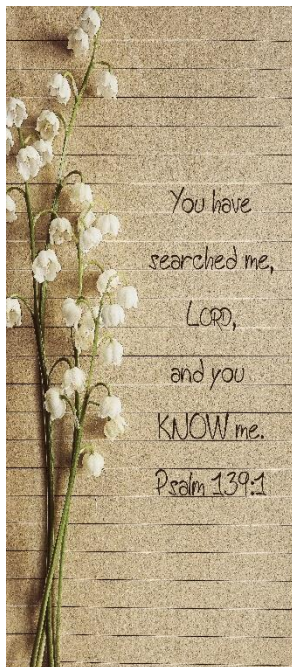 You have
searched me,
LORD,
and you
KNOW me.
Psalm 139:1